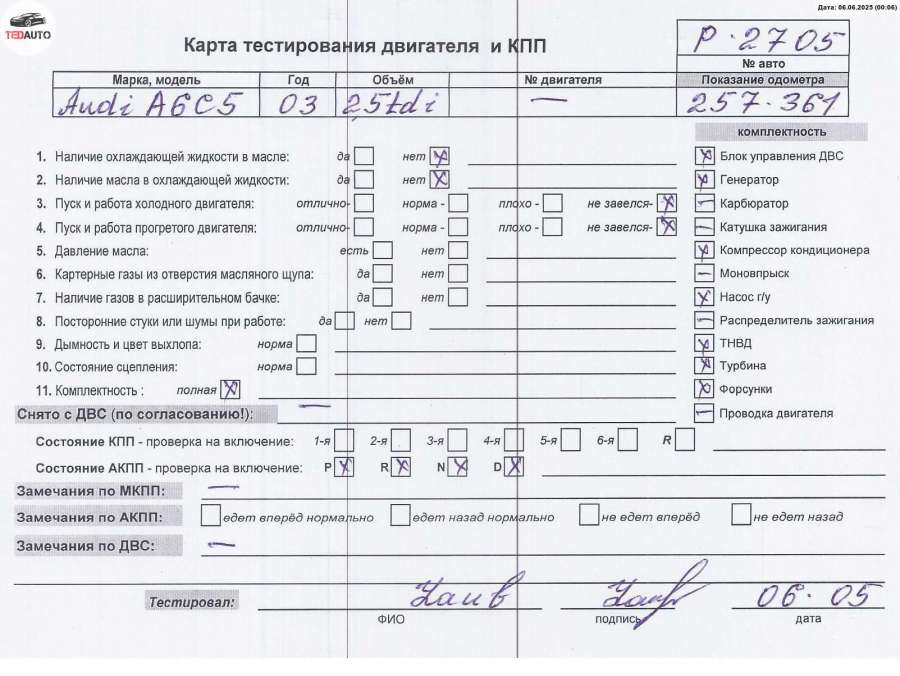 Дата: 06.06.2025 (00:06)
TEDAUTO
Карта тестирования двигателя и КПП
P · 2705
№ авто
Марка, модель Год Объём № двигателя Показание одометра
Audi A6C5 03 2,5tdi — 257·361
комплектность
1. Наличие охлаждающей жидкости в масле: да нет
2. Наличие масла в охлаждающей жидкости: да нет
3. Пуск и работа холодного двигателя: отлично- норма - плохо - не завелся-
4. Пуск и работа прогретого двигателя: отлично- норма - плохо - не завелся-
5. Давление масла: есть нет
6. Картерные газы из отверстия масляного щупа: да нет
7. Наличие газов в расширительном бачке: да нет
8. Посторонние стуки или шумы при работе: да нет
9. Дымность и цвет выхлопа: норма
10. Состояние сцепления: норма
11. Комплектность : полная
Блок управления ДВС
Генератор
Карбюратор
Катушка зажигания
Компрессор кондиционера
Моновпрыск
Насос г/у
Распределитель зажигания
ТНВД
Турбина
Форсунки
Проводка двигателя
Снято с ДВС (по согласованию!): —
Состояние КПП - проверка на включение: 1-я 2-я 3-я 4-я 5-я 6-я R
Состояние АКПП - проверка на включение: P R N D
Замечания по МКПП: —
Замечания по АКПП: едет вперёд нормально едет назад нормально не едет вперёд не едет назад
Замечания по ДВС: —
Тестировал: 06·05
ФИО подпись дата